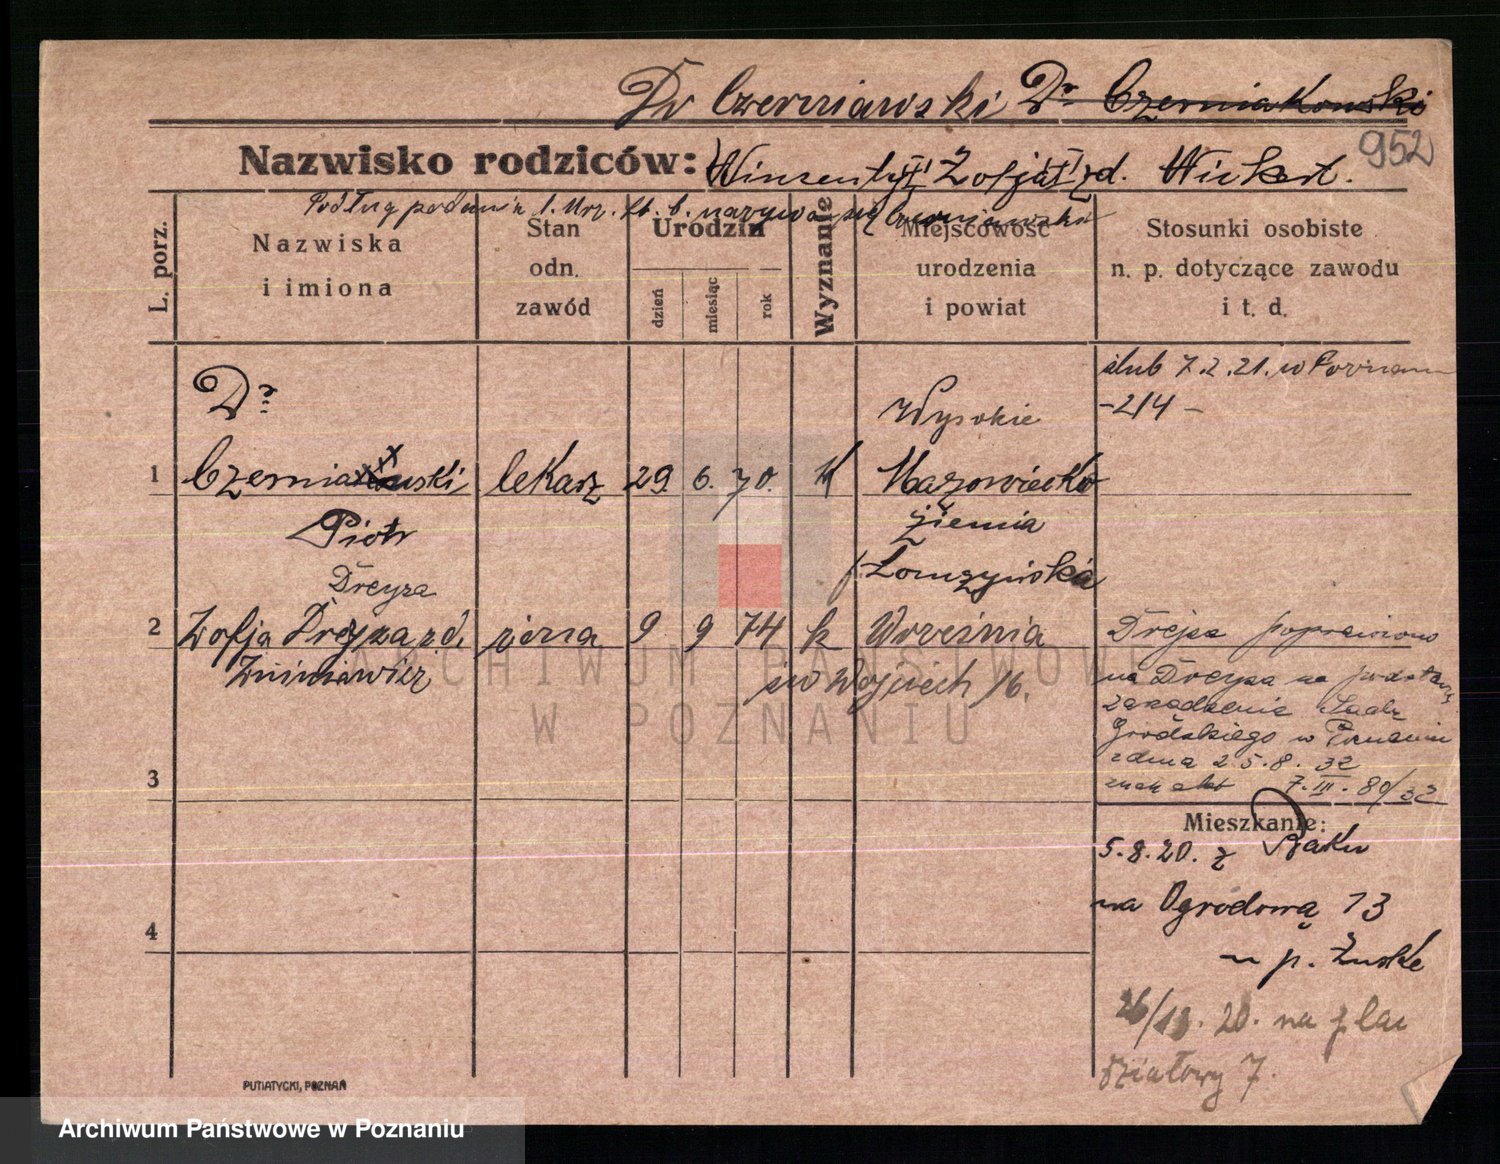 Dr Czerniawski Dr. Czerniakowski
952
Nazwisko rodziców: Winzentyj i Zofja z d. Wickert.
Podług podania 1. Urz. St. b. nazywa się Czerniawski
L. porz.
Nazwiska
i imiona
Stan
odn.
zawód
Urodzin
dzień
miesiąc
rok
Wyznanie
Miejscowość
urodzenia
i powiat
Stosunki osobiste
n. p. dotyczące zawodu
i t. d.
ślub 7.2.21. w Poznaniu
-214-
Dr.
1 Czerniawski lekarz 29. 6. 70. k Wysokie
Mazowiecko
Piotr ziemia
Łomżyńska
Dreyza
2 Zofja Drejza z d. żona 9 9 74 k Września
Żniniewicz św Wojciech 16.
Drejza poprawiono
na Dreyza na podstawie
zarządzenia Sądu
Grodzkiego w Poznaniu
z dnia 25.8.32
znak akt 7.III.80/32
3
Mieszkanie:
5.8.20. z Baku
na Ogrodową 13
4
u p. Zuske
26/10.20. na plac
Działowy 7.
PUTIATYCKI, POZNAŃ
ARCHIWUM PAŃSTWOWE
W POZNANIU
Archiwum Państwowe w Poznaniu